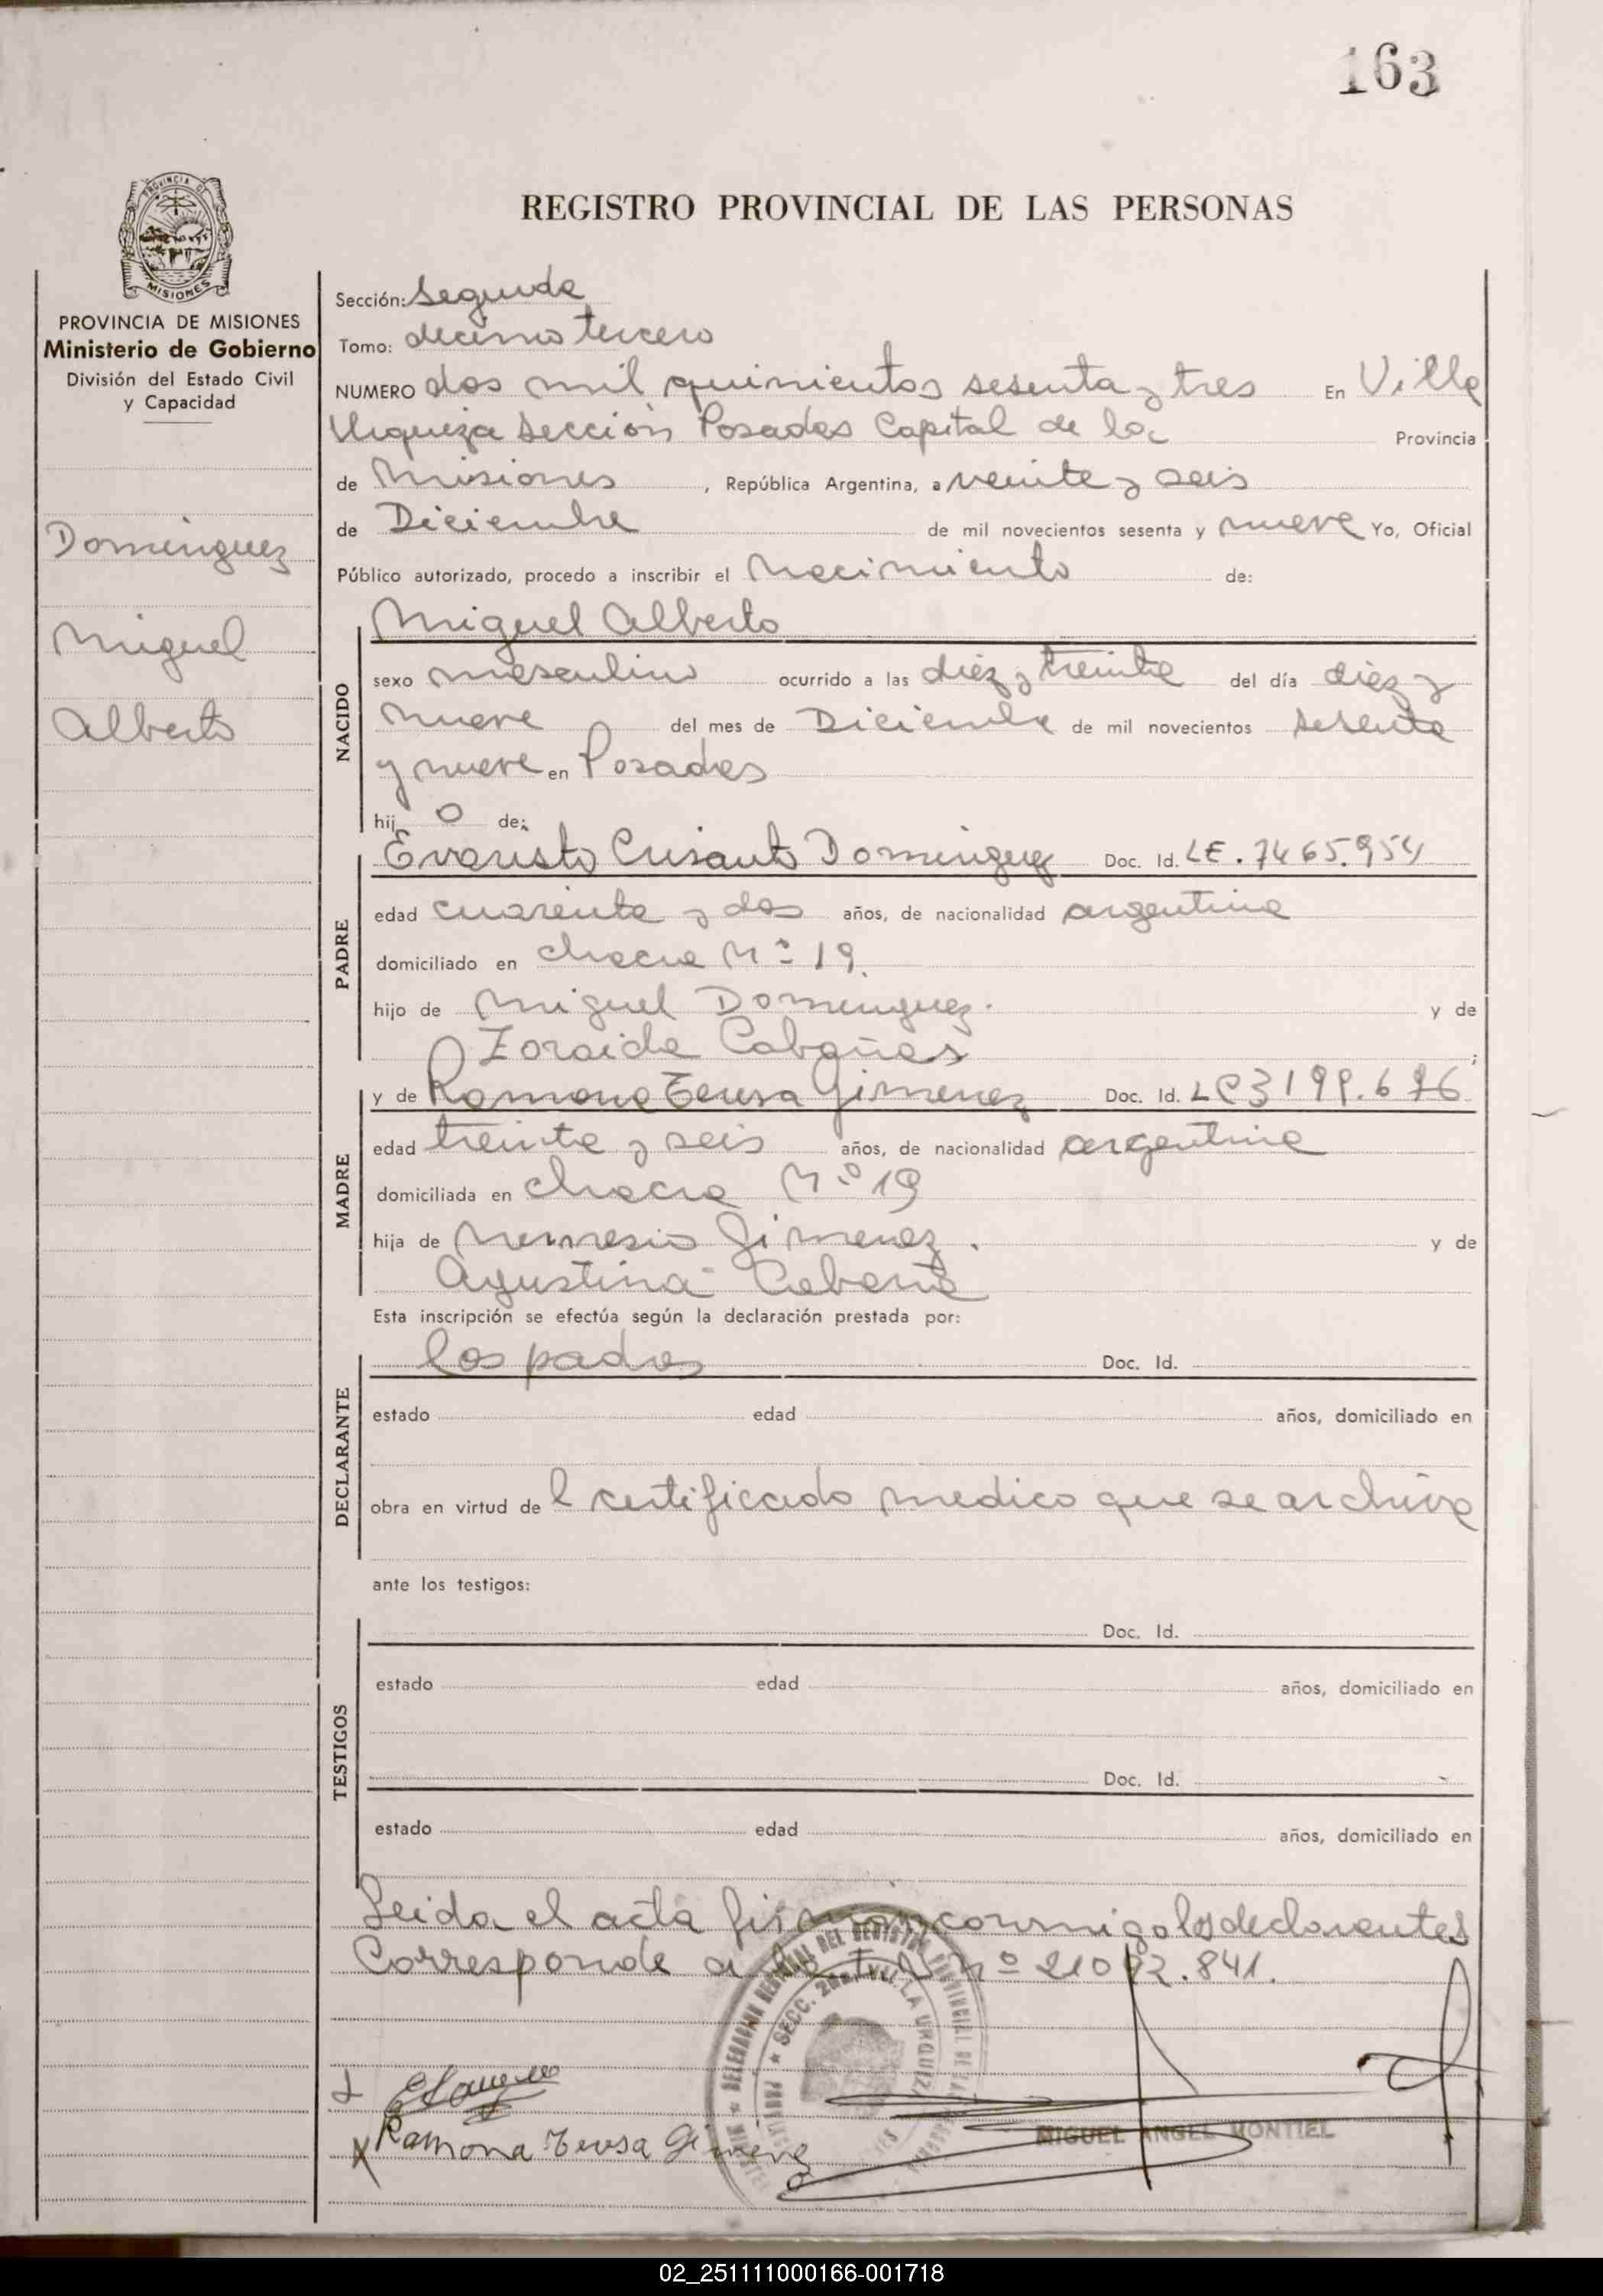 163
PROVINCIA DE MISIONES
MISIONES
PROVINCIA DE MISIONES
Ministerio de Gobierno
División del Estado Civil
y Capacidad
Dominguez
Miguel
Alberto
REGISTRO PROVINCIAL DE LAS PERSONAS
Sección: Segunda
Tomo: decimo tercero
NUMERO dos mil quinientos sesenta y tres En Villa
Urquiza Sección Posadas Capital de la Provincia
de Misiones, República Argentina, a veinte y seis
de Diciembre de mil novecientos sesenta y nueve Yo, Oficial
Público autorizado, procedo a inscribir el Nacimiento de:
Miguel Alberto
NACIDO
sexo masculino ocurrido a las diez y treinta del día diez y
nueve del mes de Diciembre de mil novecientos sesenta
y nueve en Posadas
hij o de:
PADRE
Evaristo Crisanto Dominguez Doc. Id. LE. 7465.954
edad cuarenta y dos años, de nacionalidad argentina
domiciliado en chacra Nº 19.
hijo de Miguel Dominguez. y de
Zoraida Cabañas;
MADRE
y de Ramona Teresa Gimenez Doc. Id. LC 3199.676
edad treinta y seis años, de nacionalidad argentina
domiciliada en chacra Nº 19
hija de Nemesio Gimenez. y de
Agustina
Esta inscripción se efectúa según la declaración prestada por:
DECLARANTE
los padres Doc. Id.
estado edad años, domiciliado en
obra en virtud de l certificado medico que se archiva
ante los testigos:
TESTIGOS
Doc. Id.
estado edad años, domiciliado en
Doc. Id.
estado edad años, domiciliado en
Leida el acta firman conmigo los declarantes
Corresponde a nº 21092.841.
MIGUEL ANGEL MONTIEL
Ramona Teresa Gimenez
02_251111000166-001718